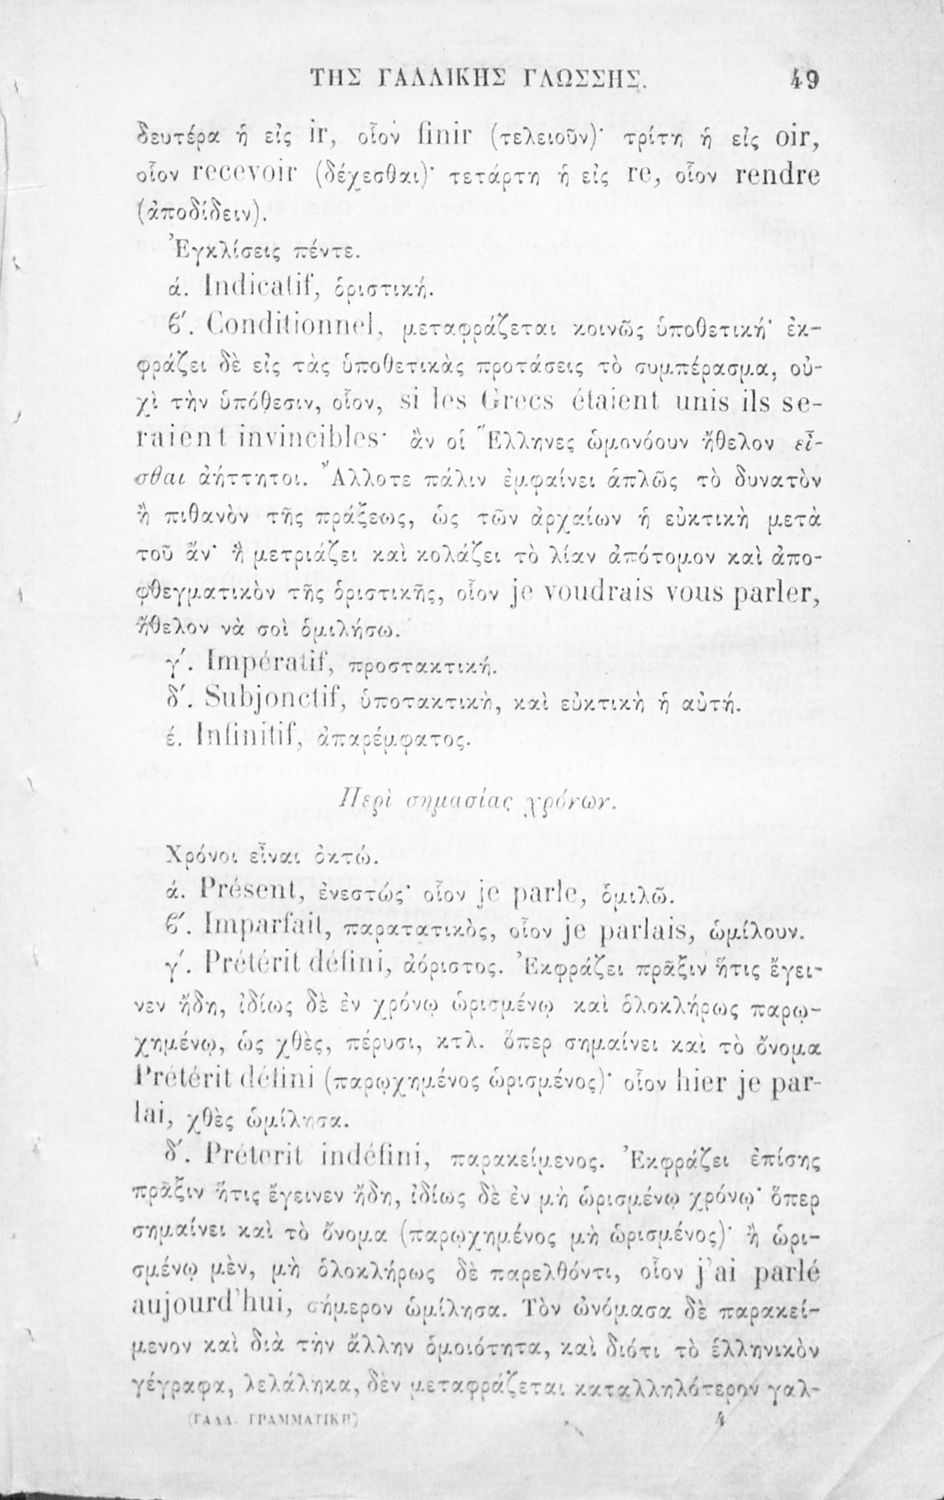 ΤΗΣ ΓΑΛΛΙΚΗΣ ΓΛΩΣΣΗΣ. 49
δευτέρα ἡ εἰς ir, οἷον finir (τελειοῦν)· τρίτη ἡ εἰς oir,
οἷον recevoir (δέχεσθαι)· τετάρτη ἡ εἰς re, οἷον rendre
(ἀποδίδειν).
Ἐγκλίσεις πέντε.
ά. Indicatif, ὁριστική.
ϐ΄. Conditionnel, μεταφράζεται κοινῶς ὑποθετική· ἐκ-
φράζει δὲ εἰς τὰς ὑποθετικὰς προτάσεις τὸ συμπέρασμα, οὐ-
χὶ τὴν ὑπόθεσιν, οἷον, si les Grecs étaient unis ils se-
raient invincibles· ἂν οἱ Ἕλληνες ὡμονόουν ἤθελον εἶ-
σθαι ἀήττητοι. Ἄλλοτε πάλιν ἐμφαίνει ἁπλῶς τὸ δυνατὸν
ἢ πιθανὸν τῆς πράξεως, ὡς τῶν ἀρχαίων ἡ εὐκτικὴ μετὰ
τοῦ ἄν· ἢ μετριάζει καὶ κολάζει τὸ λίαν ἀπότομον καὶ ἀπο-
φθεγματικὸν τῆς ὁριστικῆς, οἷον je voudrais vous parler,
ἤθελον νὰ σοὶ ὁμιλήσω.
γ΄. Impératif, προστακτική.
δ΄. Subjonctif, ὑποτακτικὴ, καὶ εὐκτικὴ ἡ αὐτή.
έ. Infinitif, ἀπαρέμφατος.
Περὶ σημασίας χρόνων.
Χρόνοι εἶναι ὀκτώ.
ά. Présent, ἐνεστώς· οἷον je parle, ὁμιλῶ.
ϐ΄. Imparfait, παρατατικὸς, οἷον je parlais, ὡμίλουν.
γ΄. Prétérit défini, ἀόριστος. Ἐκφράζει πρᾶξιν ἥτις ἔγει-
νεν ἤδη, ἰδίως δὲ ἐν χρόνῳ ὡρισμένῳ καὶ ὁλοκλήρως παρῳ-
χημένῳ, ὡς χθὲς, πέρυσι, κτλ. ὅπερ σημαίνει καὶ τὸ ὄνομα
Prétérit défini (παρῳχημένος ὡρισμένος)· οἷον hier je par-
lai, χθὲς ὡμίλησα.
δ΄. Préterit indéfini, παρακείμενος. Ἐκφράζει ἐπίσης
πρᾶξιν ἥτις ἔγεινεν ἤδη, ἰδίως δὲ ἐν μὴ ὡρισμένῳ χρόνῳ· ὅπερ
σημαίνει καὶ τὸ ὄνομα (παρῳχημένος μὴ ὡρισμένος)· ἢ ὡρι-
σμένῳ μὲν, μὴ ὁλοκλήρως δὲ παρελθόντι, οἷον j'ai parlé
aujourd'hui, σήμερον ὡμίλησα. Τὸν ὠνόμασα δὲ παρακεί-
μενον καὶ διὰ τὴν ἄλλην ὁμοιότητα, καὶ διότι τὸ ἑλληνικὸν
γέγραφα, λελάληκα, δὲν μεταφράζεται καταλληλότερον γαλ-
(ΓΑΛΛ. ΓΡΑΜΜΑΤΙΚΗ) 4